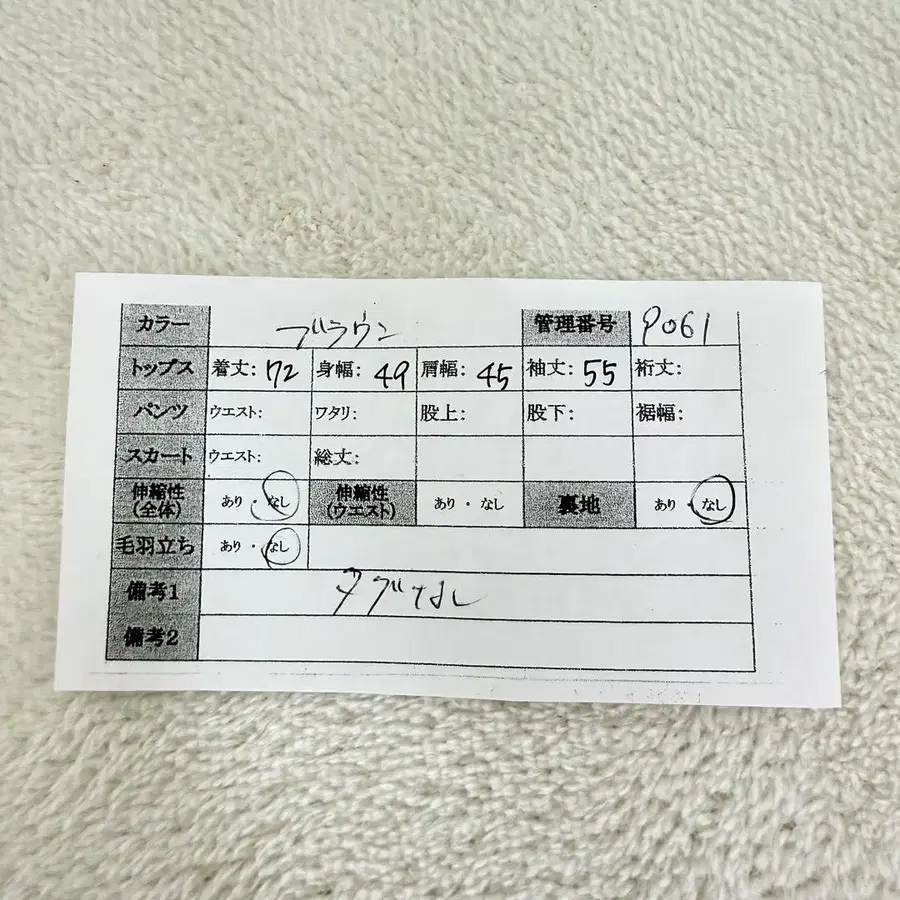 カラー ブラウン 管理番号 9061
トップス 着丈: 72 身幅: 49 肩幅: 45 袖丈: 55 裄丈:
パンツ ウエスト: ワタリ: 股上: 股下: 裾幅:
スカート ウエスト: 総丈:
伸縮性(全体) あり・なし 伸縮性(ウエスト) あり・なし 裏地 あり・なし
毛羽立ち あり・なし
備考1 タグなし
備考2